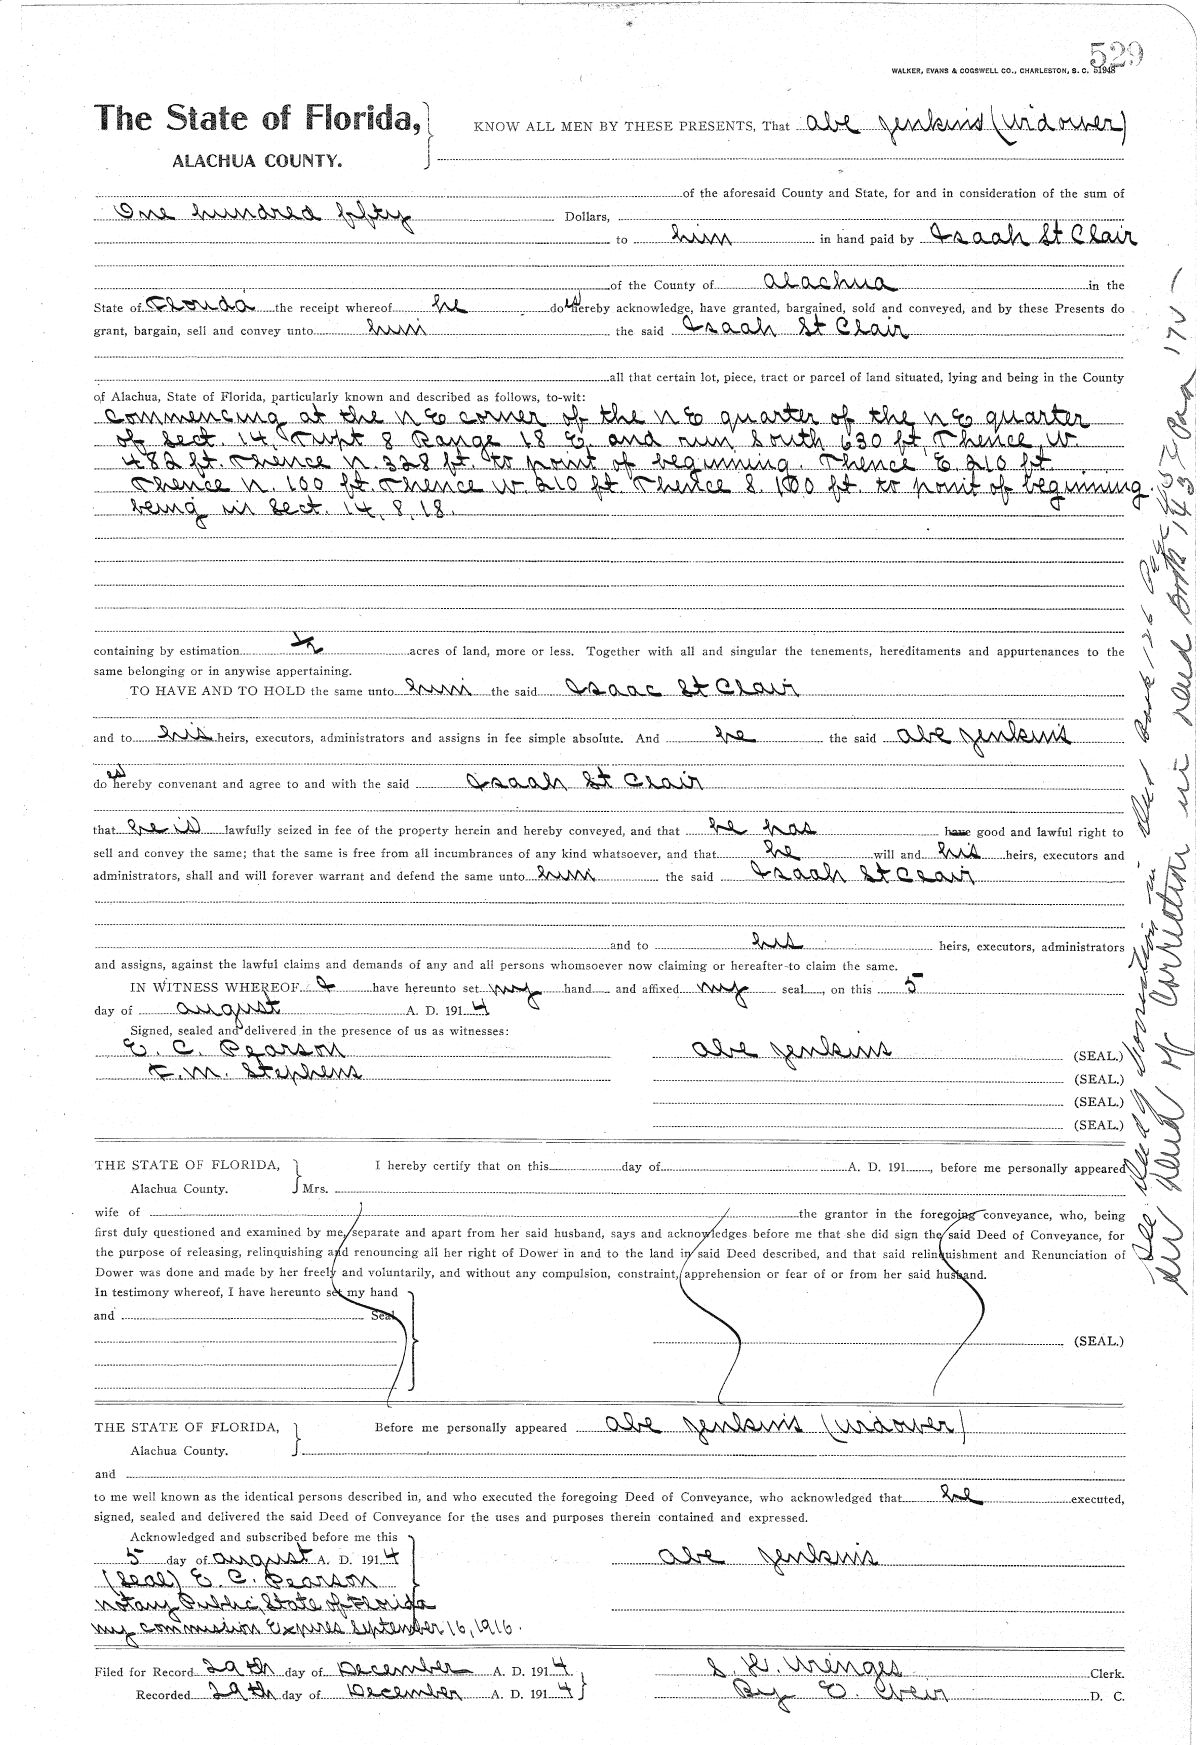 529
WALKER, EVANS & COGSWELL CO., CHARLESTON, S. C. 51948
The State of Florida,
ALACHUA COUNTY.
KNOW ALL MEN BY THESE PRESENTS, That Abe Jenkins (Widower)
of the aforesaid County and State, for and in consideration of the sum of
One hundred fifty Dollars,
to him in hand paid by Isaah St Clair
of the County of Alachua in the
State of Florida the receipt whereof he does hereby acknowledge, have granted, bargained, sold and conveyed, and by these Presents do
grant, bargain, sell and convey unto him the said Isaah St Clair
all that certain lot, piece, tract or parcel of land situated, lying and being in the County
of Alachua, State of Florida, particularly known and described as follows, to-wit:
Commencing at the N E corner of the N E quarter of the N E quarter
of Sect. 14, Twpt 8 Range 18 E. and run South 630 ft. Thence W.
482 ft. Thence N. 328 ft. to point of beginning. Thence E. 210 ft.
Thence N. 100 ft. Thence W. 210 ft Thence S. 100 ft. to point of beginning
being in Sect. 14, 8, 18.
containing by estimation 1/2 acres of land, more or less. Together with all and singular the tenements, hereditaments and appurtenances to the
same belonging or in anywise appertaining.
TO HAVE AND TO HOLD the same unto him the said Isaac St Clair
and to his heirs, executors, administrators and assigns in fee simple absolute. And he the said Abe Jenkins
does hereby convenant and agree to and with the said Isaah St Clair
that he is lawfully seized in fee of the property herein and hereby conveyed, and that he has have good and lawful right to
sell and convey the same; that the same is free from all incumbrances of any kind whatsoever, and that he will and his heirs, executors and
administrators, shall and will forever warrant and defend the same unto him the said Isaah St Clair
and to his heirs, executors, administrators
and assigns, against the lawful claims and demands of any and all persons whomsoever now claiming or hereafter to claim the same.
IN WITNESS WHEREOF I have hereunto set my hand and affixed my seal, on this 5
day of August A. D. 1914
Signed, sealed and delivered in the presence of us as witnesses:
E. C. Pearson Abe Jenkins (SEAL.)
F. M. Stephens (SEAL.)
(SEAL.)
(SEAL.)
THE STATE OF FLORIDA, I hereby certify that on this day of A. D. 191 , before me personally appeared
Alachua County. Mrs.
wife of the grantor in the foregoing conveyance, who, being
first duly questioned and examined by me, separate and apart from her said husband, says and acknowledges before me that she did sign the said Deed of Conveyance, for
the purpose of releasing, relinquishing and renouncing all her right of Dower in and to the land in said Deed described, and that said relinquishment and Renunciation of
Dower was done and made by her freely and voluntarily, and without any compulsion, constraint, apprehension or fear of or from her said husband.
In testimony whereof, I have hereunto set my hand
and Seal
(SEAL.)
THE STATE OF FLORIDA, Before me personally appeared Abe Jenkins (Widower)
Alachua County.
and
to me well known as the identical persons described in, and who executed the foregoing Deed of Conveyance, who acknowledged that he executed,
signed, sealed and delivered the said Deed of Conveyance for the uses and purposes therein contained and expressed.
Acknowledged and subscribed before me this
5 day of August A. D. 1914 Abe Jenkins
(Seal) E. C. Pearson
Notary Public, State of Florida
My commission Expires September 16, 1916.
Filed for Record 29th day of December A. D. 1914 S. H. Wienges Clerk.
Recorded 29th day of December A. D. 1914 By E. Weir D. C.
See Deed of Correction in Deed Book 126 Page 457
See Deed of Correction in Deed Book 143 Page 172